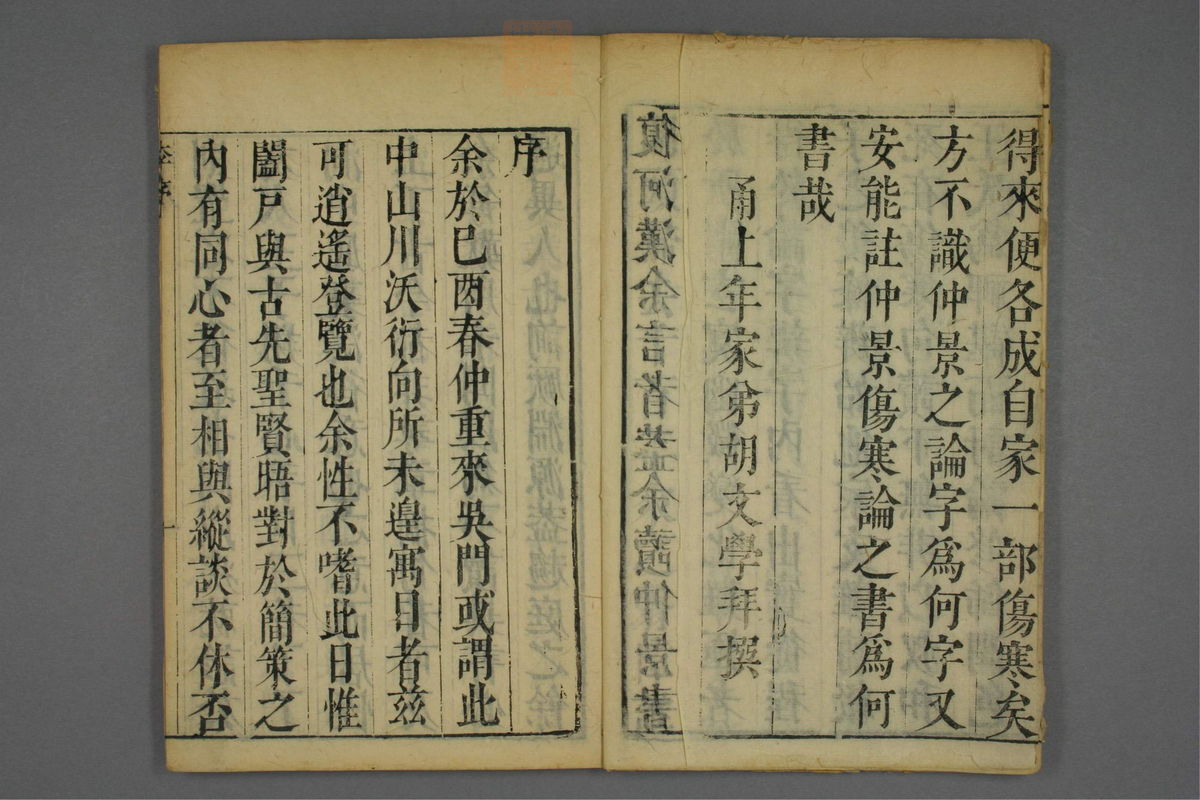 得來便各成自家一部傷寒矣
方不識仲景之論字爲何字又
安能註仲景傷寒論之書爲何
書哉
甬上年家弟胡文學拜撰
序
余於己酉春仲重來吳門或謂此
中山川沃衍向所未遑寓目者茲
可逍遙登覽也余性不嗜此日惟
闔戸與古先聖賢晤對於簡策之
內有同心者至相與縱談不休否